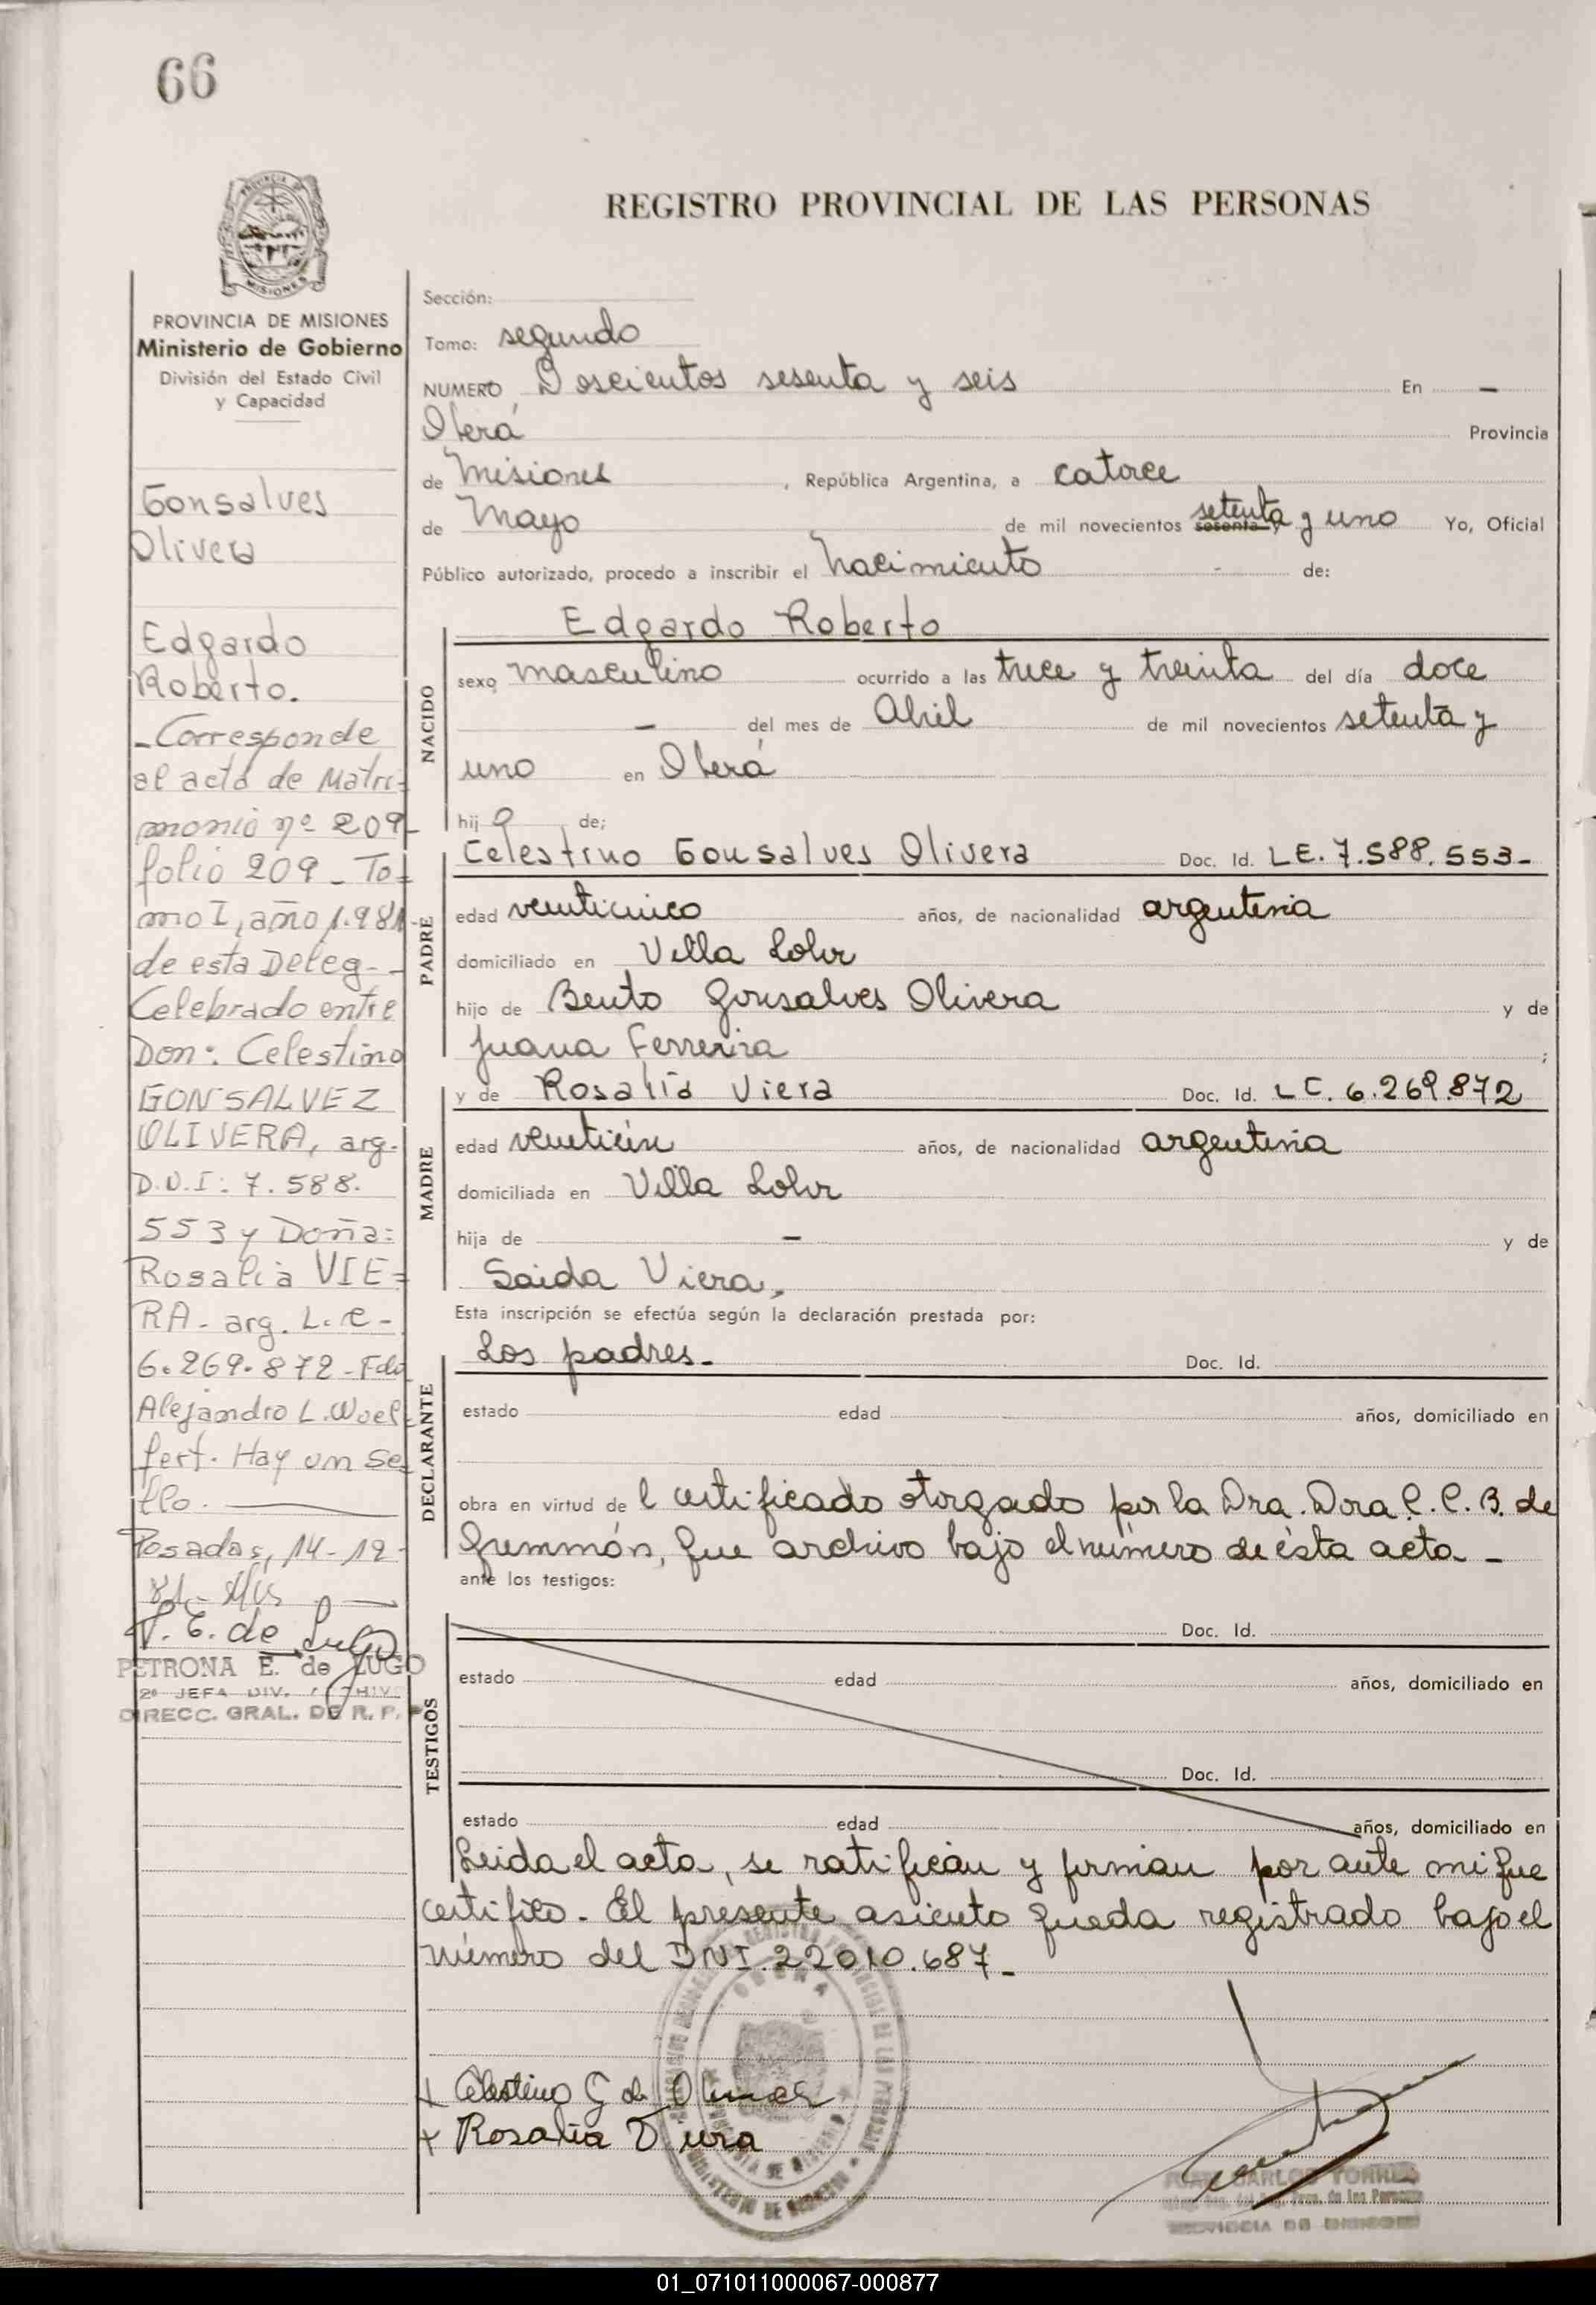 66
REGISTRO PROVINCIAL DE LAS PERSONAS
PROVINCIA DE MISIONES
Ministerio de Gobierno
División del Estado Civil
y Capacidad
Gonsalves
Olivera
Edgardo
Roberto.
- Corresponde
al acta de Matri-
monio nº 209-
folio 209 - To-
mo I, año 1.981-
de esta Deleg-
Celebrado entre
Don: Celestino
GONSALVEZ
OLIVERA, arg.
D.N.I: 7.588.
553 y Doña:
Rosalia VIE=
RA - arg. L.C-
6.269.872 - Fdo
Alejandro L. Woel-
fert. Hay un Se-
llo.
Posadas, 14-12-
81-
P. E. de Lugo
PETRONA E. de LUGO
2ª JEFA DIV. ARCHIVO
DIRECC. GRAL. DE R. P.
Sección:
Tomo: segundo
NUMERO Doscientos sesenta y seis En -
Oberá Provincia
de Misiones, República Argentina, a catorce
de Mayo de mil novecientos sesenta setenta y uno Yo, Oficial
Público autorizado, procedo a inscribir el Nacimiento de:
NACIDO
Edgardo Roberto
sexo masculino ocurrido a las trece y treinta del día doce
- del mes de Abril de mil novecientos setenta y
uno en Oberá
hijo de;
PADRE
Celestino Gonsalves Olivera Doc. Id. LE. 7.588.553-
edad veinticinco años, de nacionalidad argentina
domiciliado en Villa Lohr
hijo de Bento Gonsalves Olivera y de
Juana Ferreira ;
MADRE
y de Rosalía Viera Doc. Id. LC. 6.269.872
edad veintiún años, de nacionalidad argentina
domiciliada en Villa Lohr
hija de - y de
Saida Viera,
Esta inscripción se efectúa según la declaración prestada por:
DECLARANTE
Los padres- Doc. Id.
estado edad años, domiciliado en
obra en virtud del certificado otorgado por la Dra. Dora C. C. B. de
que archivo bajo el número de ésta acta -
ante los testigos:
TESTIGOS
Doc. Id.
estado edad años, domiciliado en
Doc. Id.
estado edad años, domiciliado en
Leida el acta, se ratifican y firman por ante mi que
certifico. El presente asiento queda registrado bajo el
número del DNI. 22010.687-
+ Celestino G de Olivera
+ Rosalia Viera
OBERA
JUAN CARLOS TORRES
PROVINCIA DE MISIONES
01_071011000067-000877